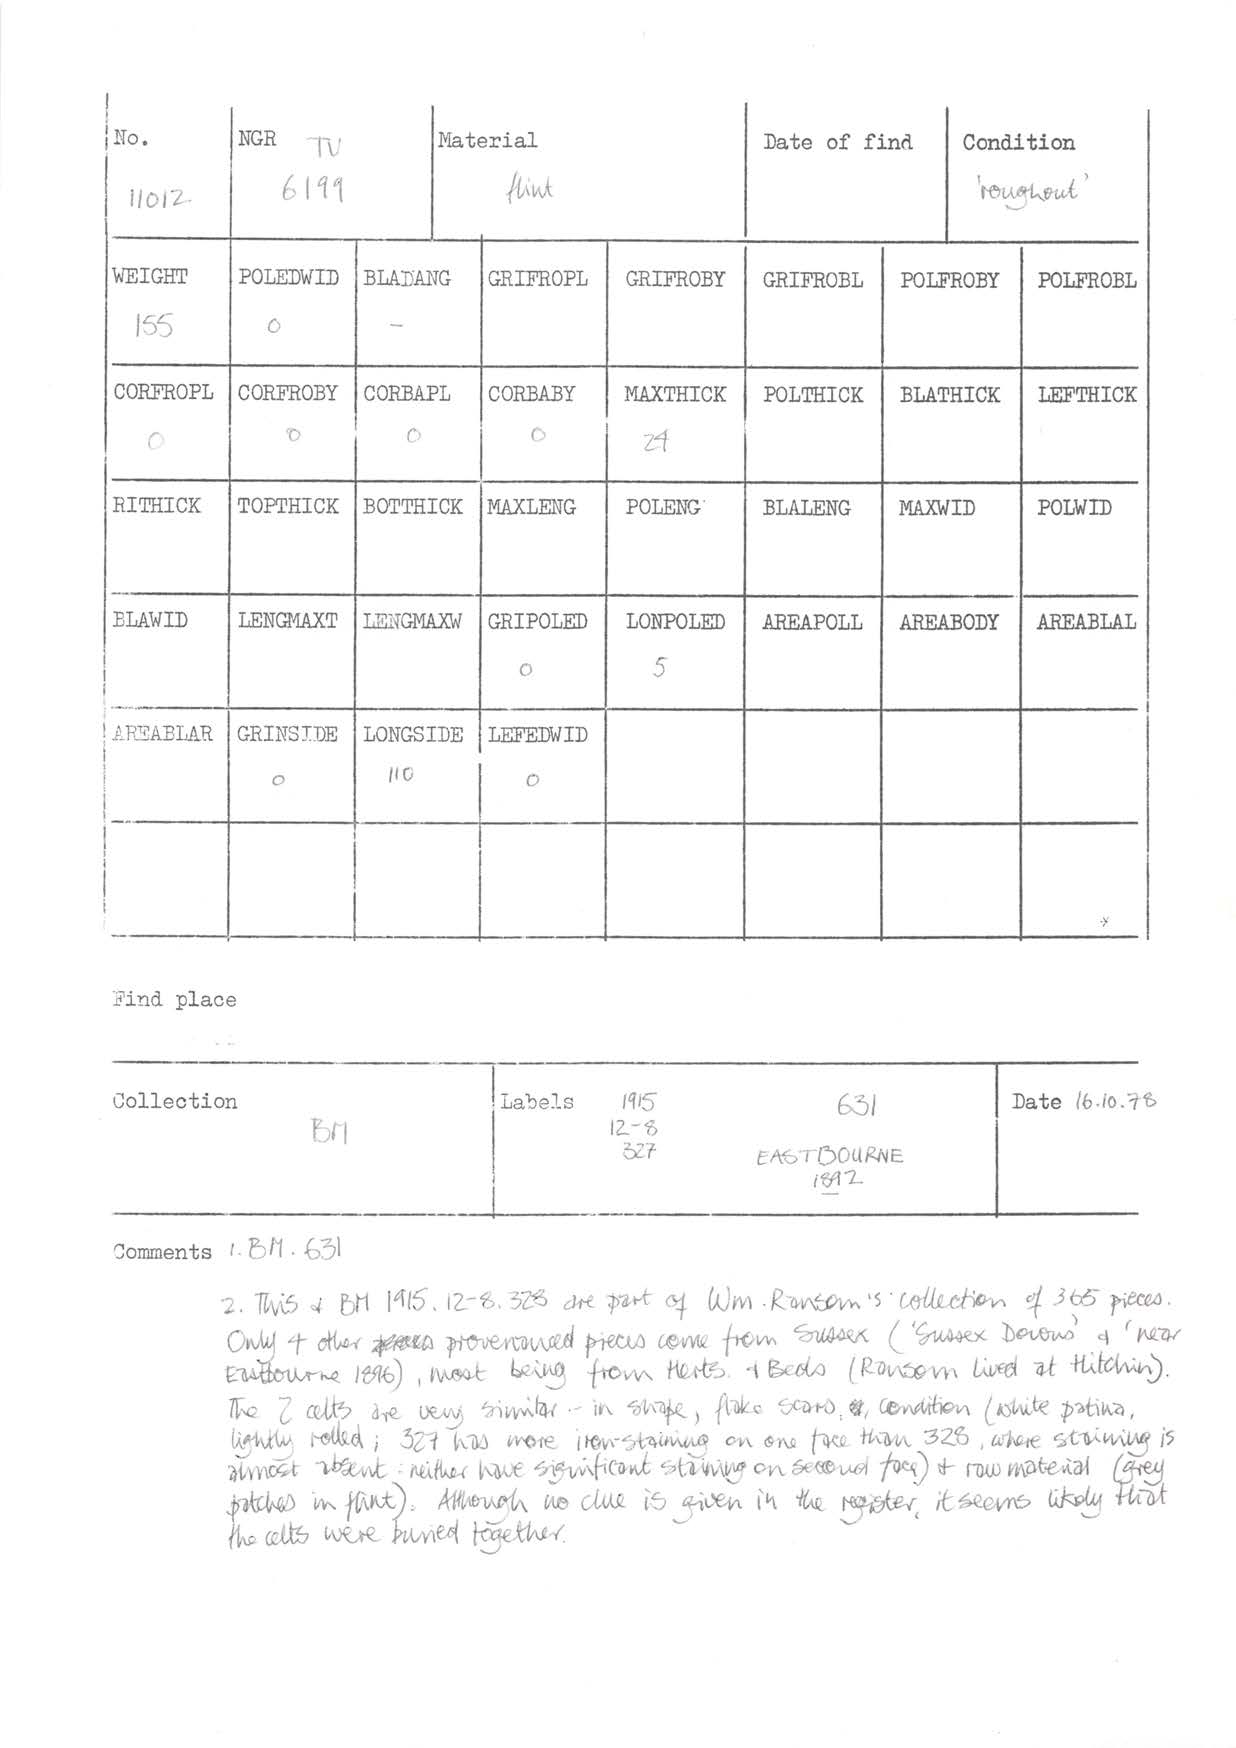 No. NGR TV Material Date of find Condition
11012 6199 flint 'roughout'
WEIGHT POLEDWID BLADANG GRIFROPL GRIFROBY GRIFROBL POLFROBY POLFROBL
155 0 -
CORFROPL CORFROBY CORBAPL CORBABY MAXTHICK POLTHICK BLATHICK LEFTHICK
0 0 0 0 24
RITHICK TOPTHICK BOTTHICK MAXLENG POLENG BLALENG MAXWID POLWID
BLAWID LENGMAXT LENGMAXW GRIPOLED LONPOLED AREAPOLL AREABODY AREABLAL
0 5
AREABLAR GRINSIDE LONGSIDE LEFEDWID
0 110 0
Find place
Collection Labels 1915 631 Date 16.10.78
BM 12-8
327 EASTBOURNE
1892
Comments 1. BM. 631
2. This & BM 1915. 12-8. 328 are part of Wm. Ransom's collection of 365 pieces.
Only 4 other provenanced pieces come from Sussex ('Sussex Downs' & 'near
Eastbourne 1896), most being from Herts. & Beds (Ransom lived at Hitchin).
The 2 celts are very similar - in shape, flake scars, condition (white patina,
lightly rolled; 327 has more iron-staining on one face than 328, where staining is
almost absent : neither have significant staining on second face) & raw material (grey
patches in flint). Although no clue is given in the register, it seems likely that
the celts were buried together.